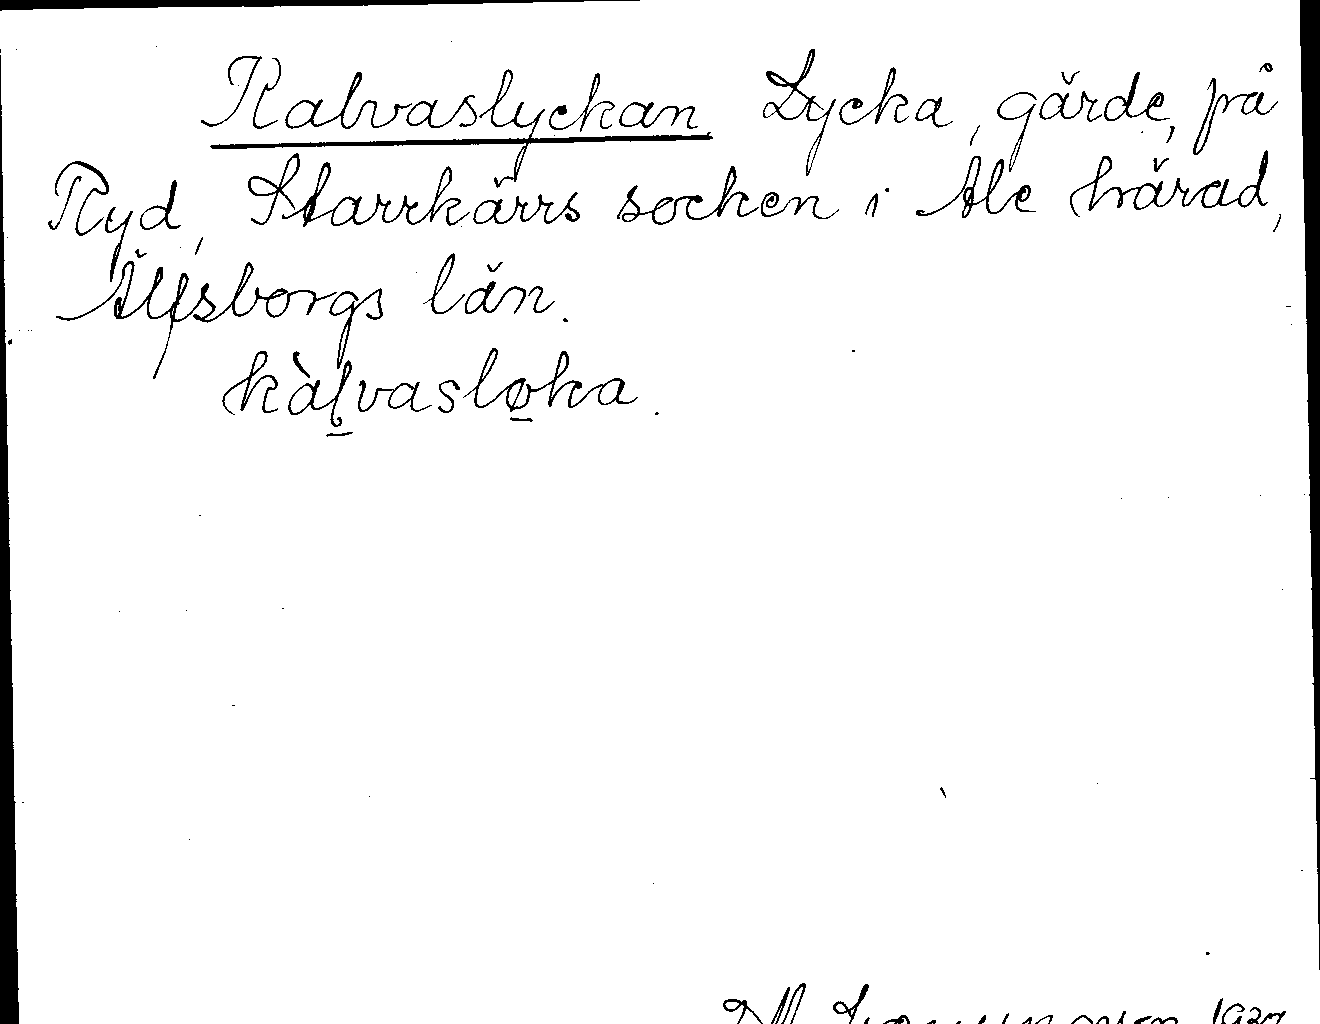 Kalvaslyckan Lycka, gärde, på
Ryd, Starrkärrs socken i Ale härad,
Älfsborgs län.
kàl̥vasløka.